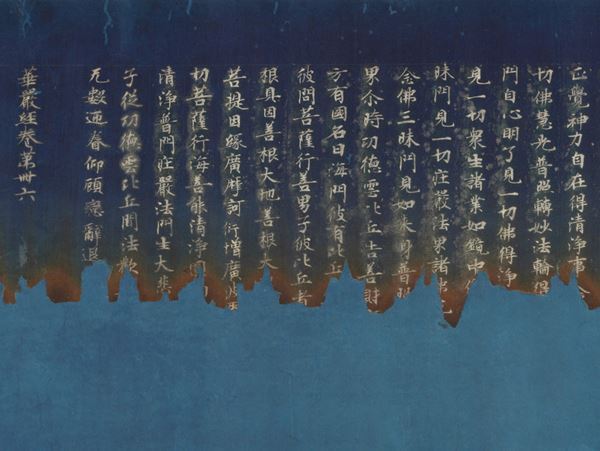 正覺神力自在得清淨
切佛慧光普照轉妙法輪得
門自心明了見一切佛得淨
見一切衆生諸業如鏡中
昧門見一切莊嚴法界諸
念佛三昧門見如來身普
男尒時功德雲比丘告善財
方有國名曰海門彼有比丘
彼問菩薩行善男子彼比丘
根具因善根大地善根大
菩提因緣廣摩訶衍增廣
切菩薩行海善能清淨
清淨普門莊嚴法門生大悲
子從功德雲比丘聞法歡
无數迊眷仰顧戀辭退
華嚴經卷第卌六